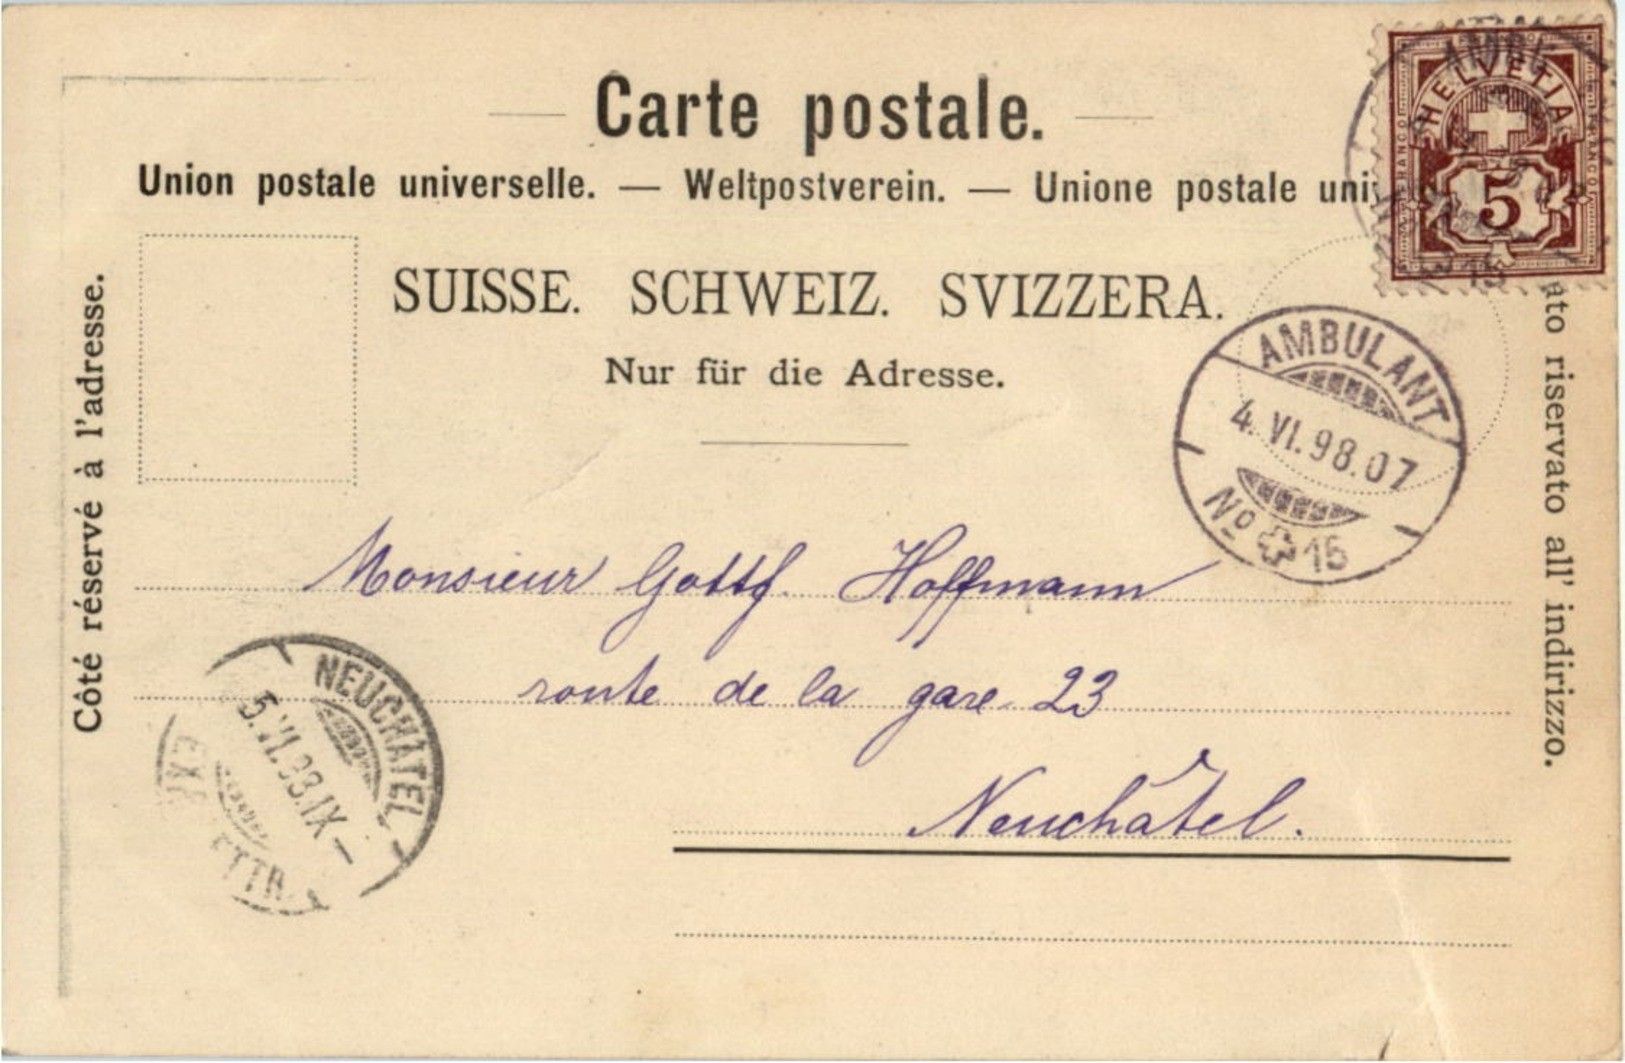 Carte postale.
Union postale universelle. — Weltpostverein. — Unione postale
SUISSE. SCHWEIZ. SVIZZERA.
Nur für die Adresse.
Côté réservé à l'adresse.
riservato all' indirizzo.
HELVETIA
FRANCO
5
AMBULANT
4.VI.98.07
No 15
Monsieur Gottf. Hoffmann
route de la gare 23
Neuchâtel.
NEUCHÂTEL
5.VI.98.IX